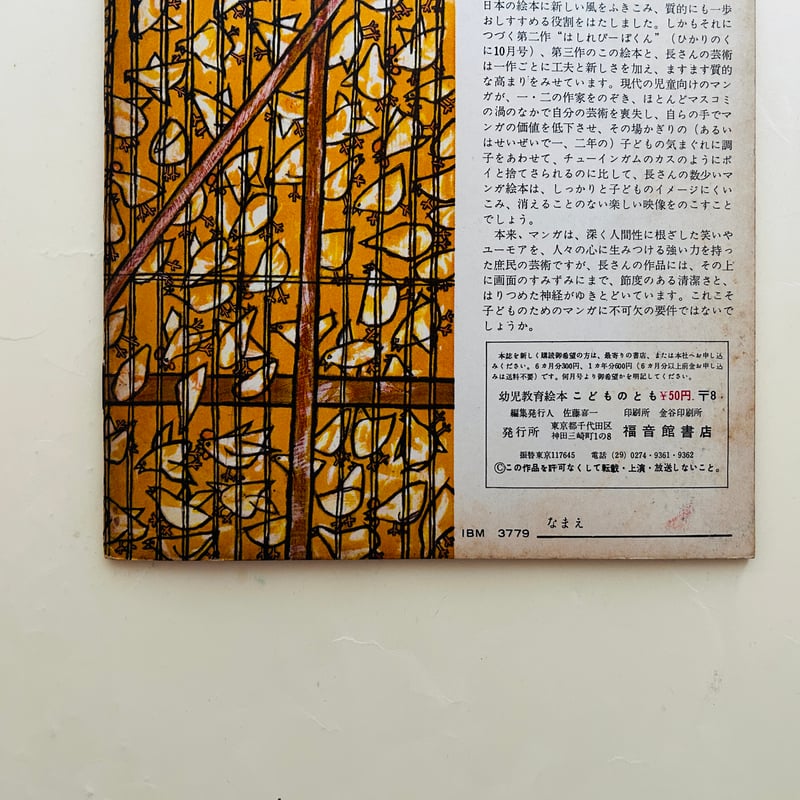 日本の絵本に新しい風をふきこみ、質的にも一歩
おしすすめる役割をはたしました。しかもそれに
つづく第二作“はしれぴーぽくん”（ひかりのく
に10月号）、第三作のこの絵本と、長さんの芸術
は一作ごとに工夫と新しさを加え、ますます質的
な高まりをみせています。現代の児童向けのマン
ガが、一・二の作家をのぞき、ほとんどマスコミ
の渦のなかで自分の芸術を喪失し、自らの手でマ
ンガの価値を低下させ、その場かぎりの（あるい
はせいぜいで一、二年の）子どもの気まぐれに調
子をあわせて、チューインガムのカスのようにポ
イと捨てさられるのに比して、長さんの数少いマ
ンガ絵本は、しっかりと子どものイメージにくい
こみ、消えることのない楽しい映像をのこすこと
でしょう。
本来、マンガは、深く人間性に根ざした笑いや
ユーモアを、人々の心に生みつける強い力を持っ
た庶民の芸術ですが、長さんの作品には、その上
に画面のすみずみにまで、節度のある清潔さと、
はりつめた神経がゆきとどいています。これこそ
子どものためのマンガに不可欠の要件ではないで
しょうか。
本誌を新しく購読御希望の方は、最寄りの書店、または本社へお申し込
みください。6カ月分300円、1カ年分600円（6カ月分以上前金お申し込
みは送料不要）です。何月号より御希望かを明記してください。
幼児教育絵本 こどものとも ¥50円. 〒8.
編集発行人 佐藤喜一 印刷所 金谷印刷所
発行所 東京都千代田区 神田三崎町1の8 福音館書店
振替東京117645 電話（29）0274・9361・9362
Ⓒこの作品を許可なくして転載・上演・放送しないこと。
IBM 3779 なまえ